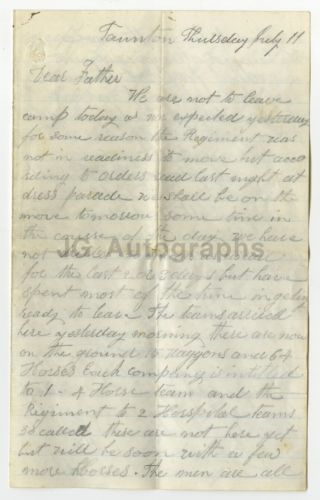 Taunton Thursday July 11
Dear Father
We are not to leave
camp today as we expected yesterday
for some reason the Regiment was
not in readiness to move but acco
rding to orders read last night at
dress parade we shall be on the
move tomorrow some time in
the course of the day we have
not
JG Autographs
for the last 2 or 3 days but have
spent most of the time in geting
ready to leave The teams arrived
here yesterday morning there are now
on the ground 15 waggons and 64
Horses Each company is intitled
to 1 - 4 Horse team and the
Regiment to 2 Horspital teams
so called these are not here yet
but will be soon with a few
more Horses. The men are all